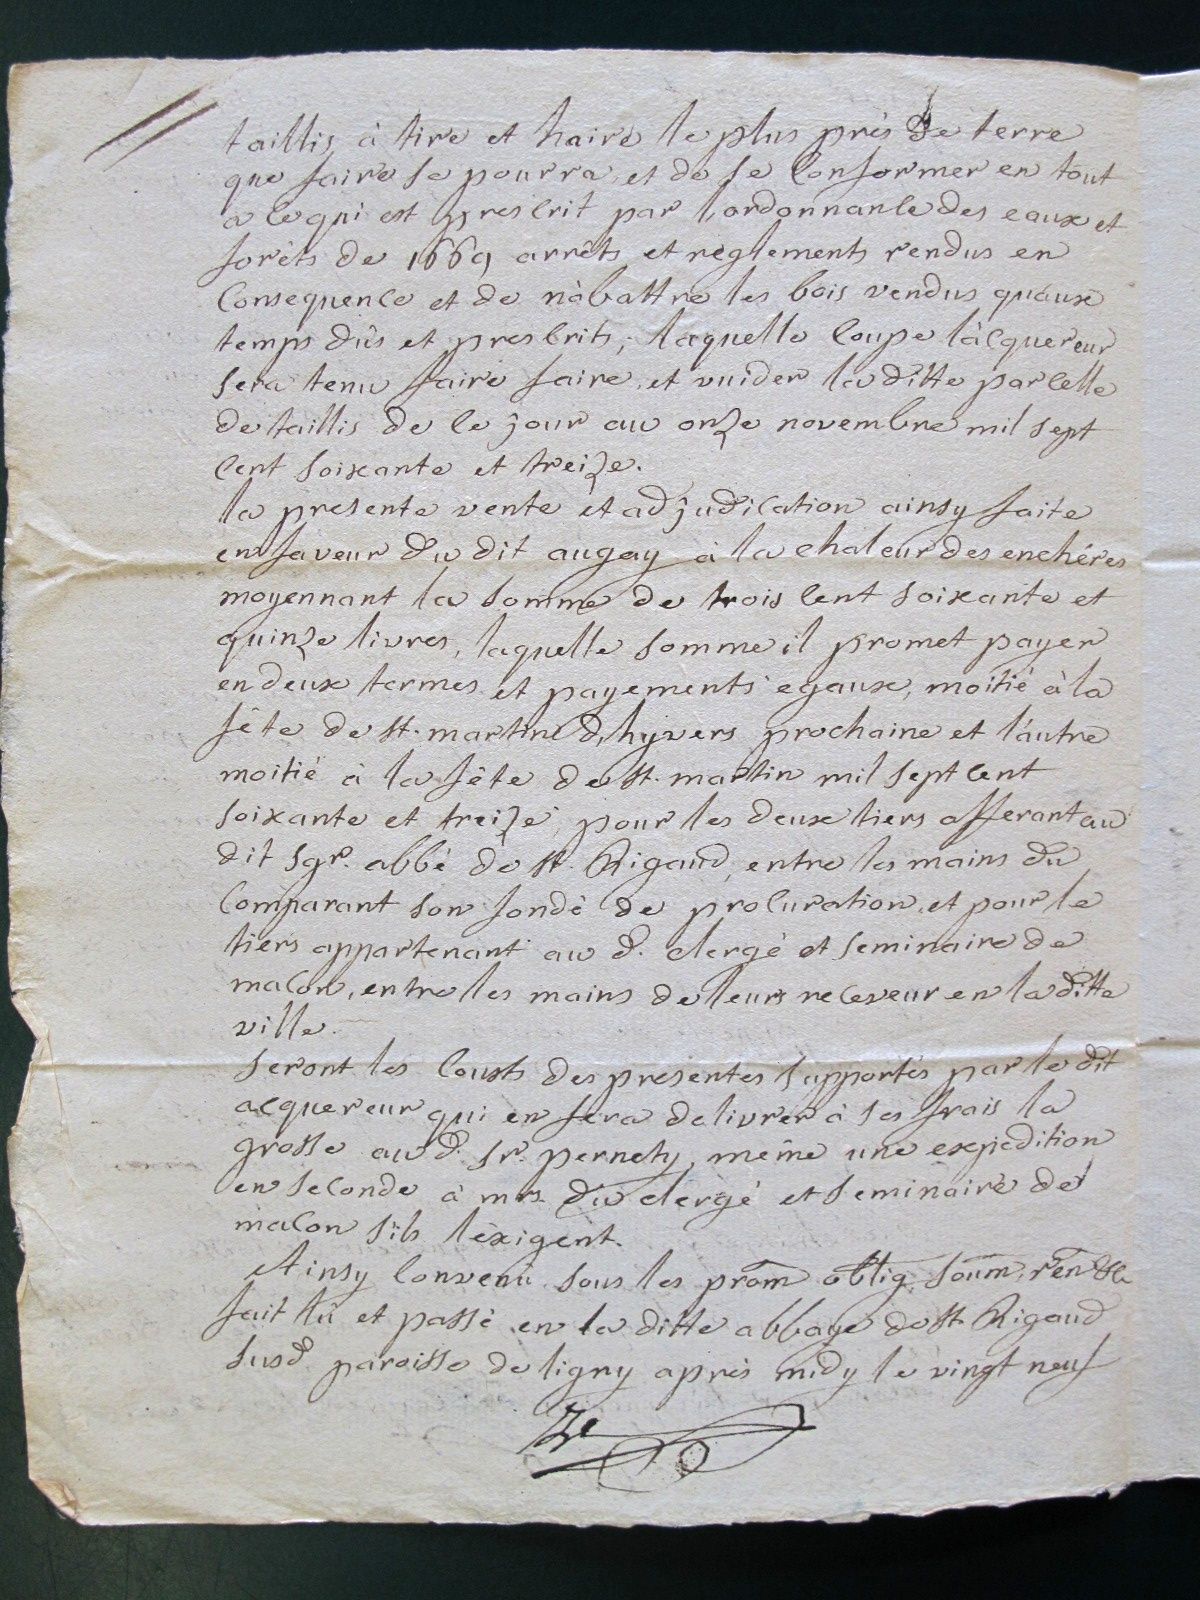 taillis à tire et haire le plus prés de terre
que faire se pourra, et de se conformer en tout
a ce qui est prescrit par l'ordonnance des eaux et
foréts de 1669 arrêts et reglements rendus en
consequence et de n'abattre les bois vendus quaux
temps dûs et prescrits; laquelle coupe l'àcquereur
sera tenu faire faire, et vuider la ditte parcelle
de taillis de ce jour au onze novembre mil sept
cent soixante et treize.
la presente vente et adjudication ainsy faite
en faveur du dit augay à la chaleur des enchéres
moyennant la somme de trois cent soixante et
quinze livres, laquelle somme il promet payer
en deux termes et payements egaux, moitié à la
fête de st. martin d'hyvers prochaine et l'autre
moitié à la fête de st. martin mil sept cent
soixante et treize, pour les deux tiers afferant au
dit sgr. abbé de st. Rigaud, entre les mains du
comparant son fondé de procuration, et pour le
tiers appartenant au d. clergé et seminaire de
macon, entre les mains de leurs receveur en la ditte
ville.
seront les cousts des presentes supportés par le dit
acquereur qui en fera delivrer à ses frais la
grosse au d. sr. pernety, même une expedition
en seconde à mrs. du clergé et seminaire de
macon s'ils l'exigent.
Ainsy convenu sous les prom oblig. soum. ren &c
fait lû et passé en la ditte abbaye de st. Rigaud
susd. paroisse de ligny aprés midy le vingt neuf